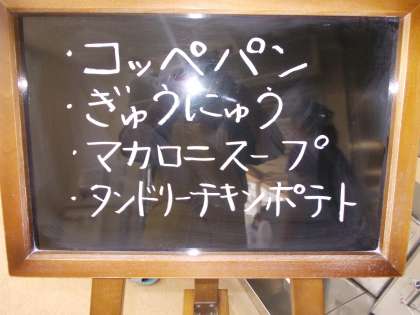 ・コッペパン
・ぎゅうにゅう
・マカロニスープ
・タンドリーチキンポテト